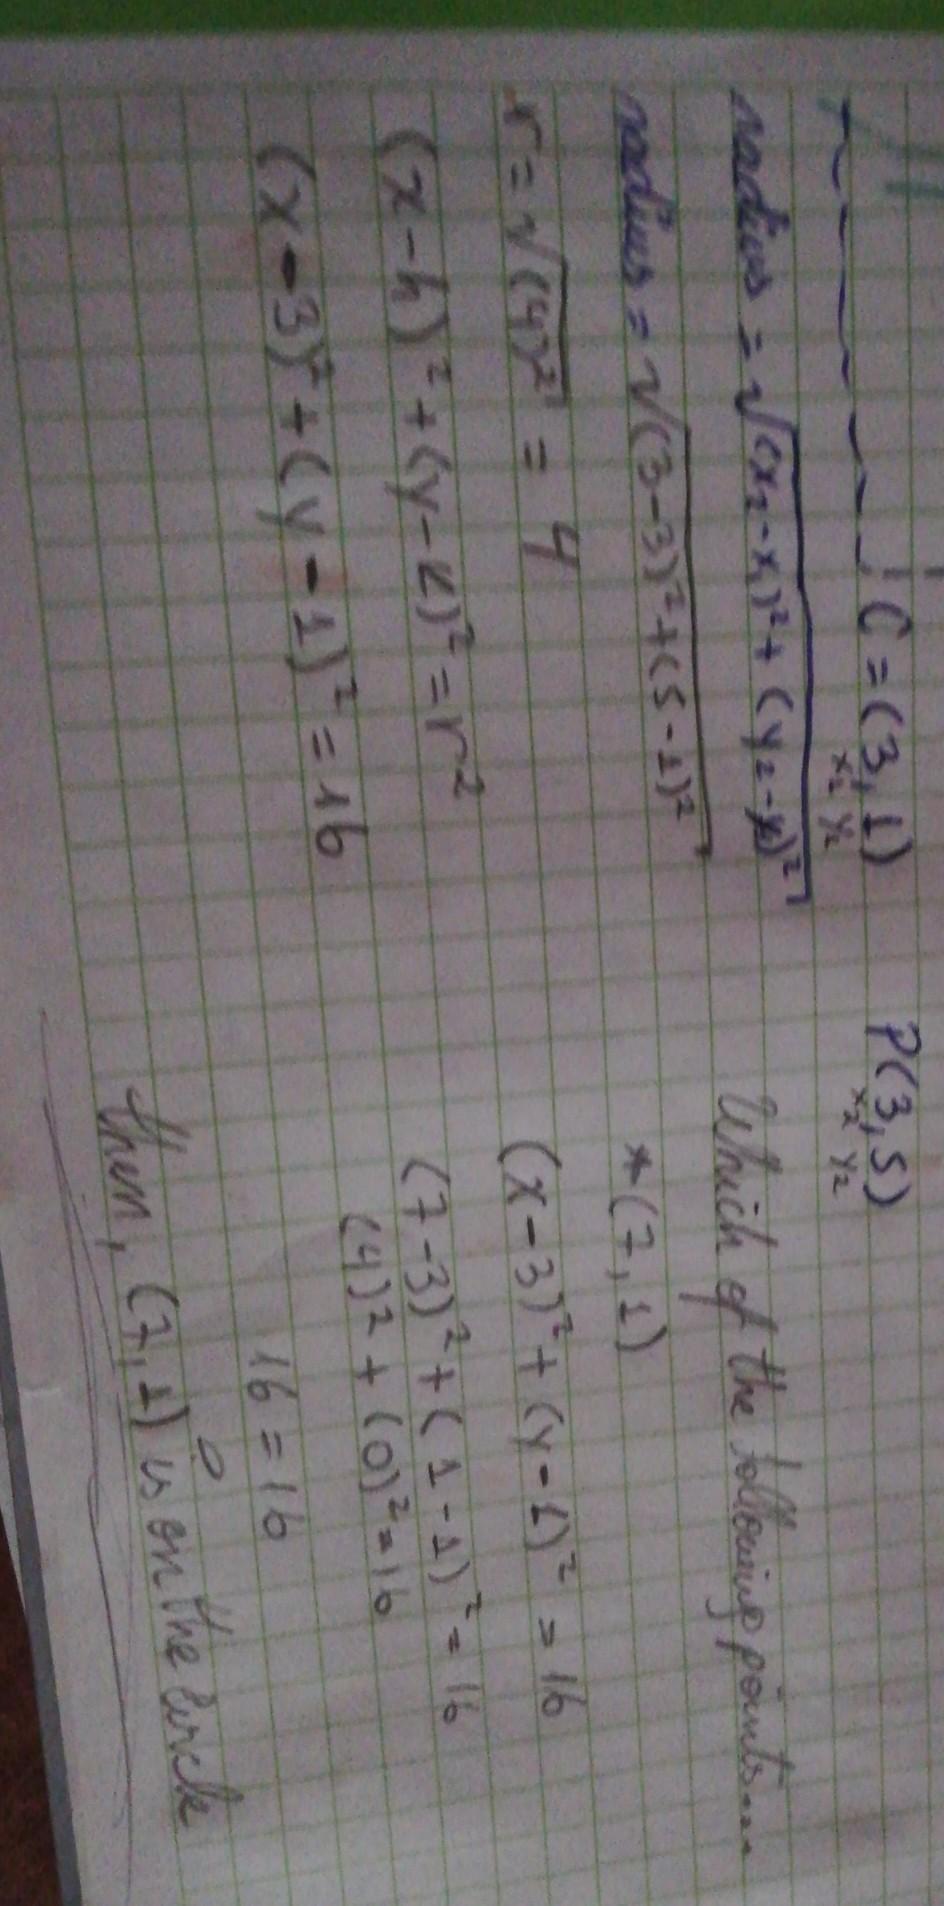 C = (3, 1)
x₂ y₂
P(3, 5)
x₂ y₂
radius = √(x₂ - x₁)² + (y₂ - y₁)²
radius = √(3 - 3)² + (5 - 1)²
r = √(4)² = 4
(x - h)² + (y - k)² = r²
(x - 3)² + (y - 1)² = 16
Which of the following points....
* (7, 1)
(x - 3)² + (y - 1)² = 16
(7 - 3)² + (1 - 1)² = 16
(4)² + (0)² = 16
16 = 16
then, (7, 1) is on the circle